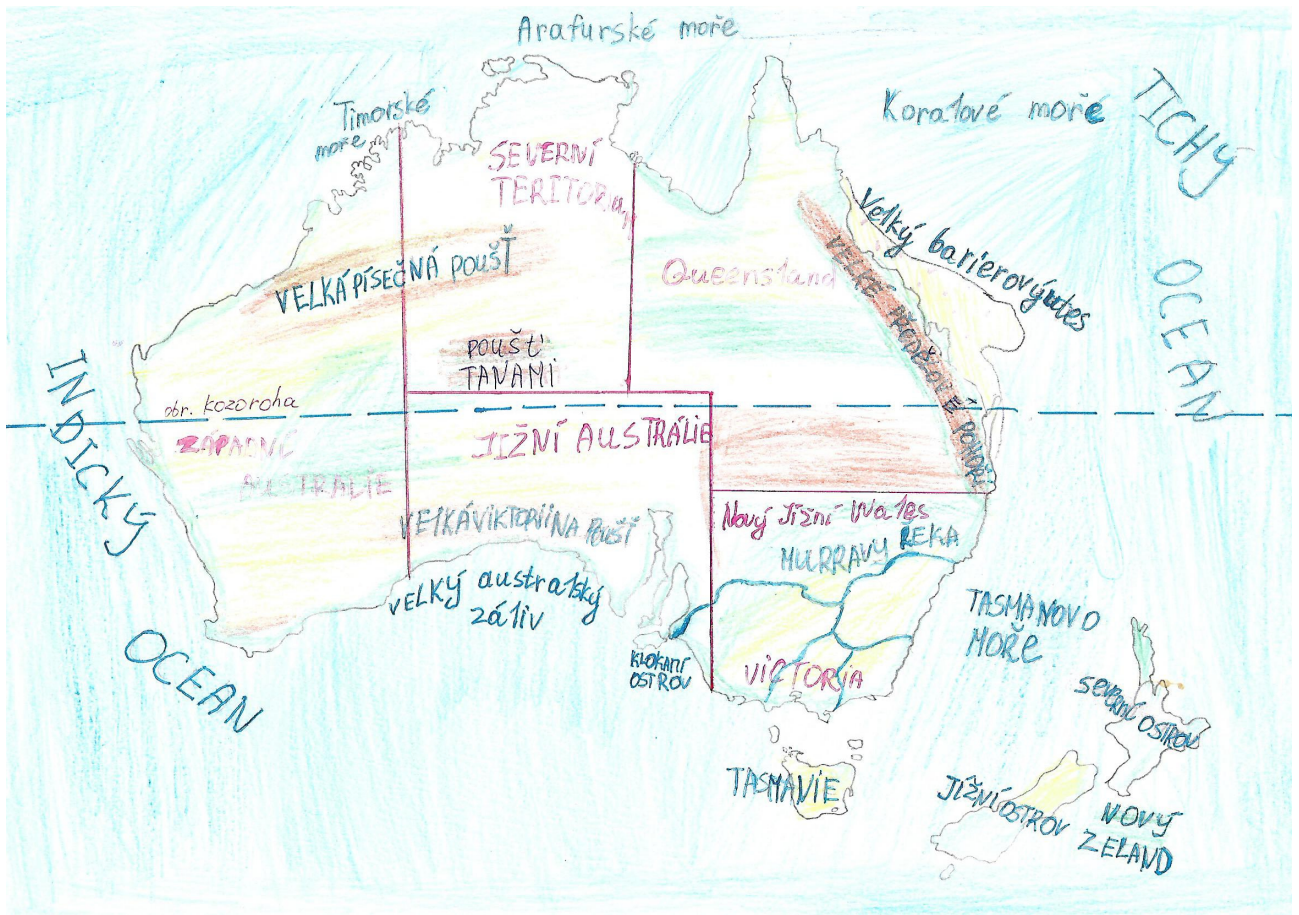 Arafurské moře
Timorské
moře
Koralové moře
TICHÝ
OCEAN
SEVERNÍ
TERITORium
Velký barierový utes
VELKÁ PÍSEČNÁ POUŠŤ
Queensland
VELKÉ PŘEDĚLOVÉ POHOŘÍ
POUŠŤ
TANAMI
INDICKÝ
OCEAN
obr. kozoroha
ZÁPADNÍ
AUSTRALIE
JIŽNÍ AUSTRÁLIE
VELKÁ VIKTORIINA POUŠŤ
Nový Jížní Wales
MURRAVY ŘEKA
VELKÝ australský
záliv
KLOKANÍ
OSTROV
VICTORIA
TASMANOVO
MOŘE
SEVERNÍ OSTROV
TASMANIE
JÍŽNÍ OSTROV
NOVÝ
ZELAND